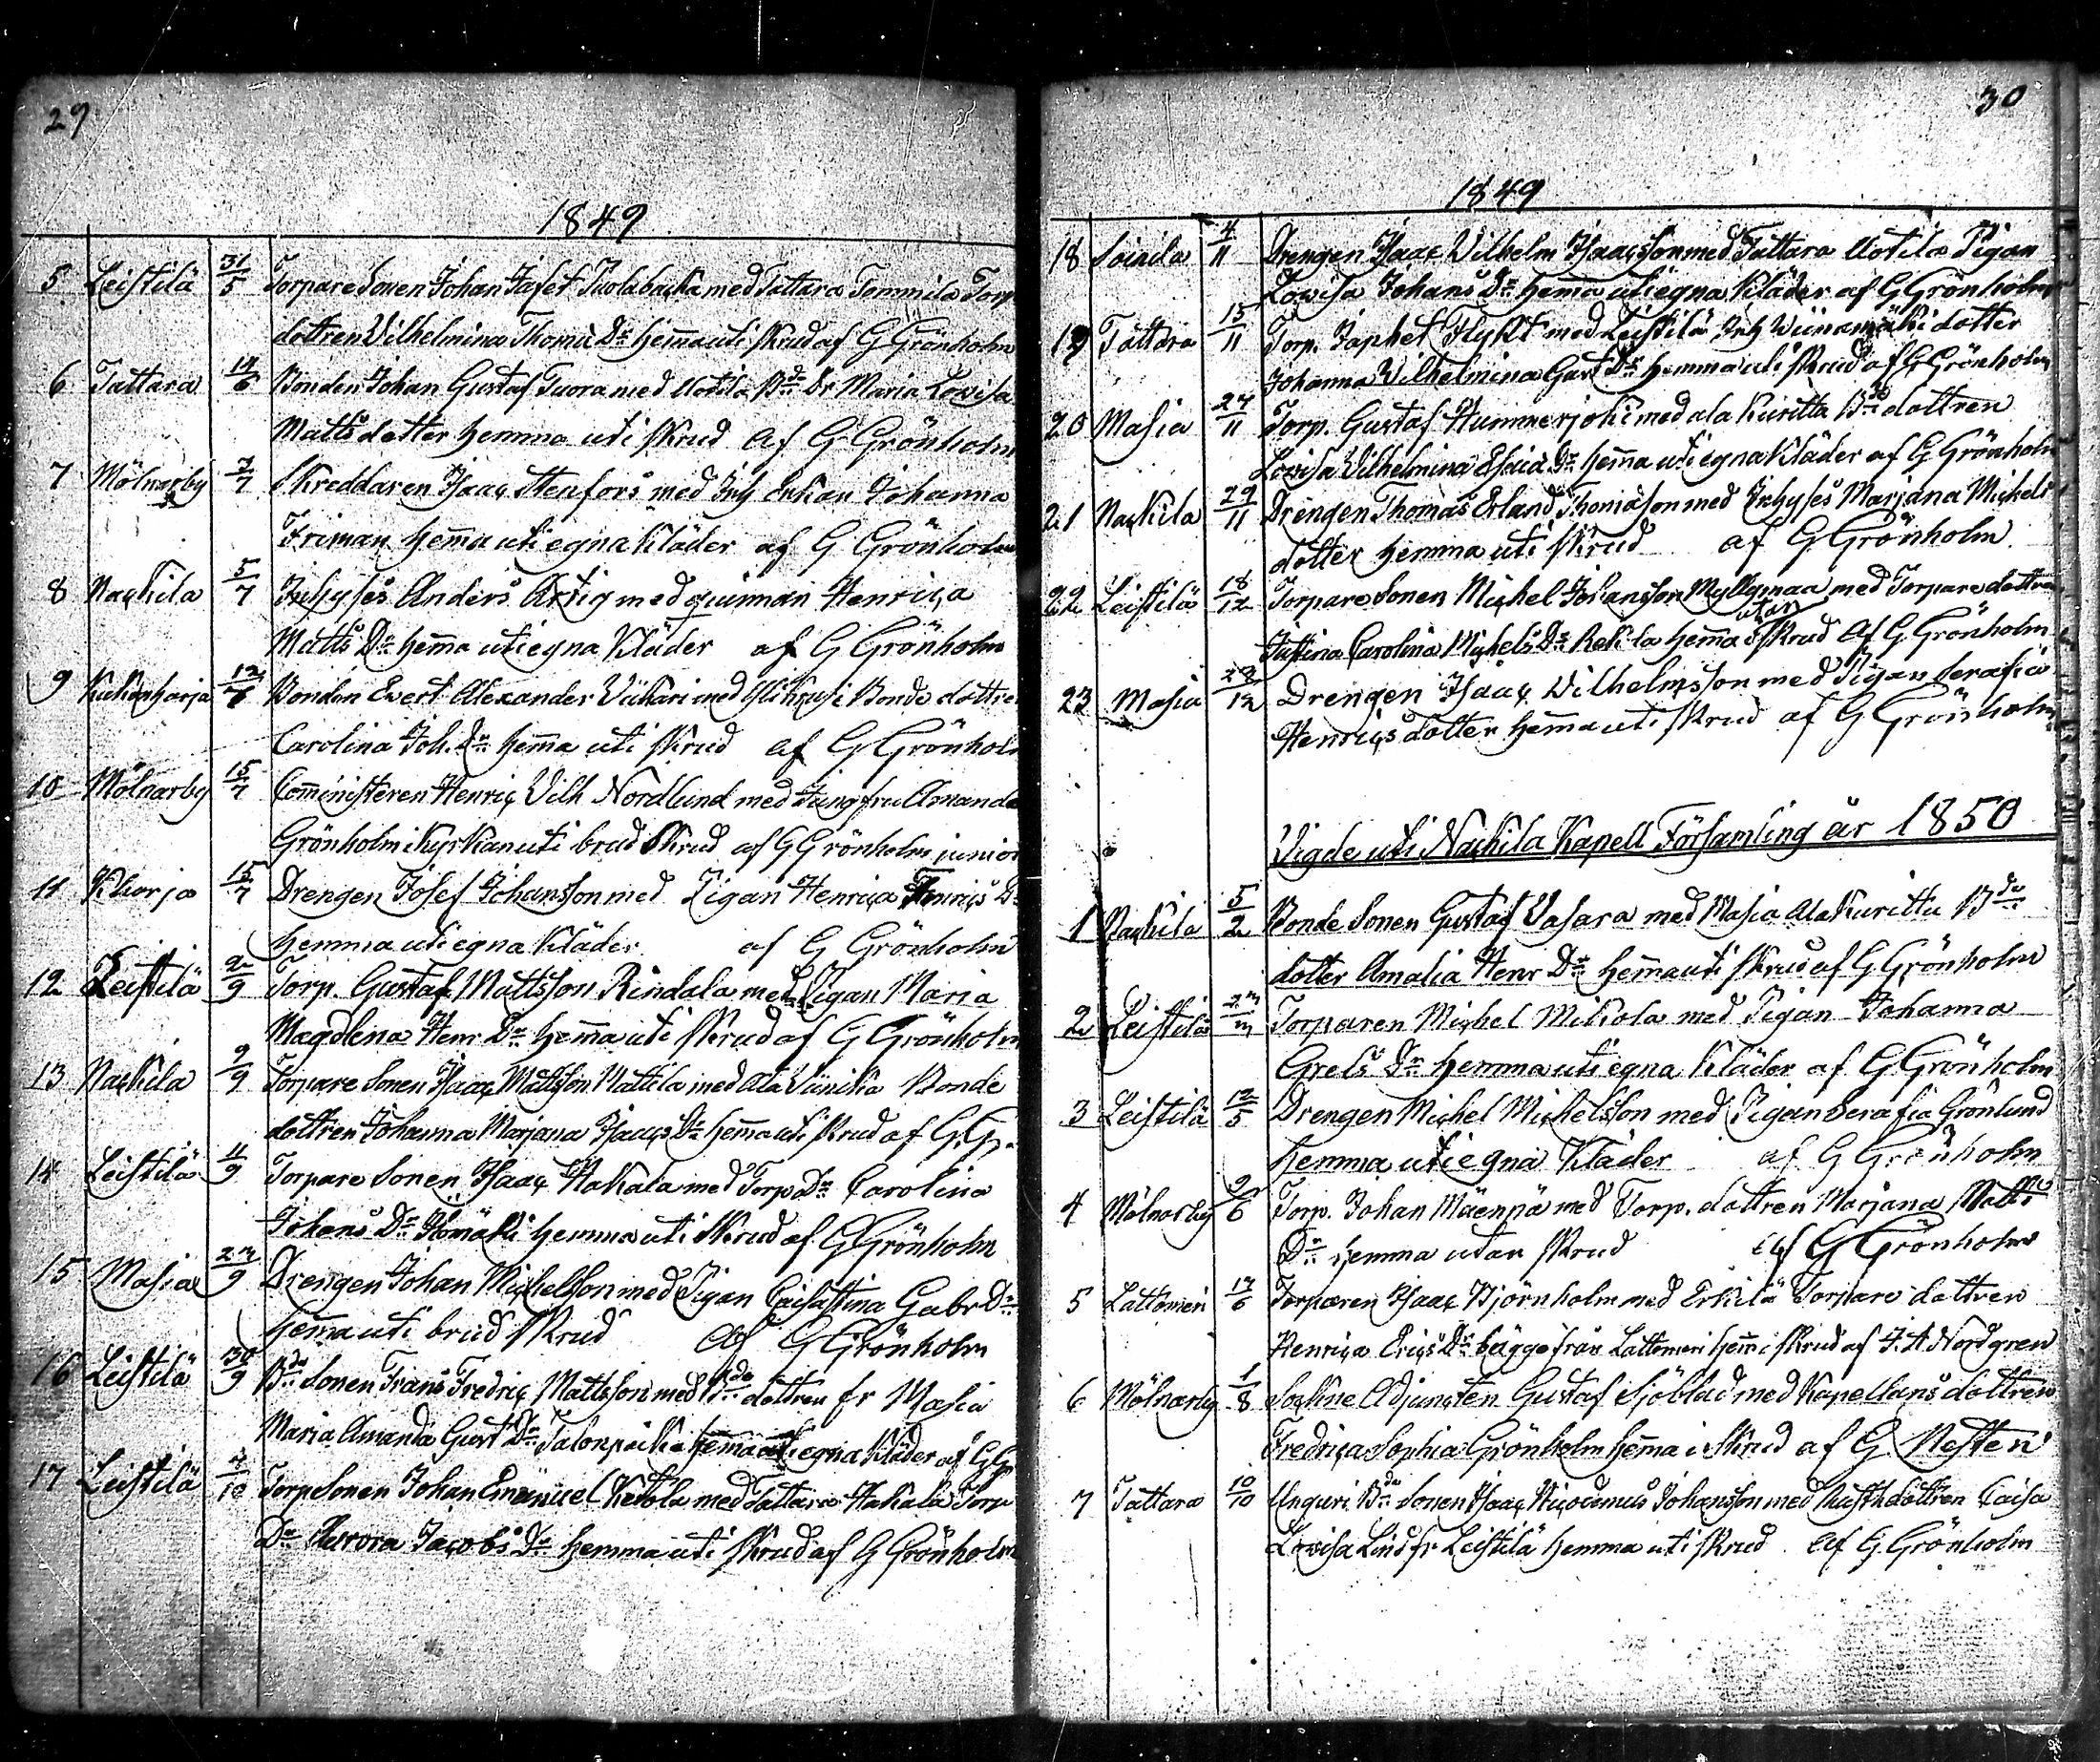 29
1849
5 Leistilä 31/5 Torpare Sonen Johan Jafet Tuolabacka med Tattara Tommila Torp
dottren Vilhelmina Thom: Dr hem̄a uti skrud af G Grönholm
6 Tattara 14/6 Bonden Johan Gustaf Tuora med Uotila Bde Dr Maria Lovisa
Matts dotter hemma uti skrud af G Grönholm
7 Mölnarby 3/7 Skreddaren Isaac Stenfors med Inh Enkan Johanna
Friman hem̄a uti egna kläder af G Grönholm
8 Nackila 5/7 Inhyses Anders Artig med quinnan Henrica
Matts Dr hem̄a uti egna kläder af G Grönholm
9 Kukonharja 12/7 Bonden Evert Alexander Viikari med Bonde dottre
Carolina Joh. Dr hem̄a uti skrud af G Grönhol
10 Mölnarby 15/7 Com̄inisteren Henric Vilh Nordlund med Jungfru Amanda
Grönholm i Kyrkan uti brud skrud af G Grönholm junior
11 Kharja 15/7 Drengen Josef Johansson med Pigan Henrica Henrics D
hemma uti egna kläder af G Grönholm
12 Leistilä 2/9 Torp. Gustaf Mattsson Rindala med Pigan Maria
Magdlena Henr Dr hem̄a uti skrud af G Grönholm
13 Nackila 9/9 Torpare Sonen Isaac Mattsson Mattila med Ala Viinikka Bonde
dottren Johanna Marjana Isaacs Dr hem̄a uti skrud af G.G.
14 Leistilä 11/9 Torpare Sonen Isaac Hakala med Torp Dr Carolina
Johans Dr hemma uti skrud af G Grönholm
15 Masia 23/9 Drengen Johan Michelsson med Pigan Caisastina Gabr Dr
hem̄a uti brud skrud af G Grönholm
16 Leistilä 30/9 Bde Sonen Frans Fredric Mattsson med Bde dottren fr Masia
Maria Amanda Gust Dr Talonpoika hem̄a uti egna kläder af G G
17 Leistilä 7/10 Torp Sonen Johan Emanuel Ketola med Tattara Hakala Torp
Dr Aurora Jacobs Dr hemma uti skrud af G Grönholm
30
1849
18 Soinila 4/11 Drengen Isaac Vilhelm Isaacsson med Tattara Uotila Pigan
Lovisa Johans Dr hem̄a uti egna kläder af G Grönholm
19 Tattara 15/11 Torp. Japhet Flykt med Leistilä Inh Wiinamäki dotter
Johanna Vilhelmina Gust Dr hemma uti skrud af G Grönholm
20 Masia 27/11 Torp. Gustaf Hummerjoki med ala Kuritta Bde dottren
Lovisa Vilhelmina Esaiæ Dr hem̄a uti egna kläder af G Grönholm
21 Nackila 29/11 Drengen Thomas Erland Thomasson med Inhyses Marjana Michels
dotter hemma uti skrud af G Grönholm
22 Leistilä 18/12 Torpare Sonen Michel Johansson Myllymaa med Torpare dottren
Justina Carolina Michels Dr Rekila hem̄a utan skrud af G. Grönholm
23 Masia 28/12 Drengen Isaac Vilhelmsson med Pigan Serafia
Henrics dotter hem̄a uti skrud af G Grönholm
Vigde uti Nackila Kapell Församling år 1850
1 Nackila 5/2 Bonde Sonen Gustaf Vasara med Masia Ala Kuritta Bde
dotter Amalia Henr Dr hem̄a uti skrud af G Grönholm
2 Leistilä Torparen Michel Mikola med Pigan Johanna
Grels Dr hemma uti egna kläder af G Grönholm
3 Leistilä 12/5 Drengen Michel Michelsson med Pigan Serafia Grönlund
hemma uti egna kläder af G Grönholm
4 Mölnarby 9/6 Torp. Johan Mäenpä med Torp. dottren Marjana Matts
Dr hemma utan skrud af G Grönholm
5 Lattomeri 17/6 Torparen Isaac Björnholm med Erkilä Torpare dottren
Henrica Erics Dr bägge från Lattomeri hem̄ i skrud af F. A. Nordgren
6 Mölnarby 1/8 Sockne Adjuncten Gustaf Sjöblad med Kapellans dottren
Fredrica Sophia Grönholm hem̄a i skrud af G. Nesten
7 Tattara 10/10 Unguri Bde Sonen Isaac Nicodemus Johansson med Rusth dottren Caisa
Lovisa Lind fr Leistilä hemma uti skrud af G. Grönholm